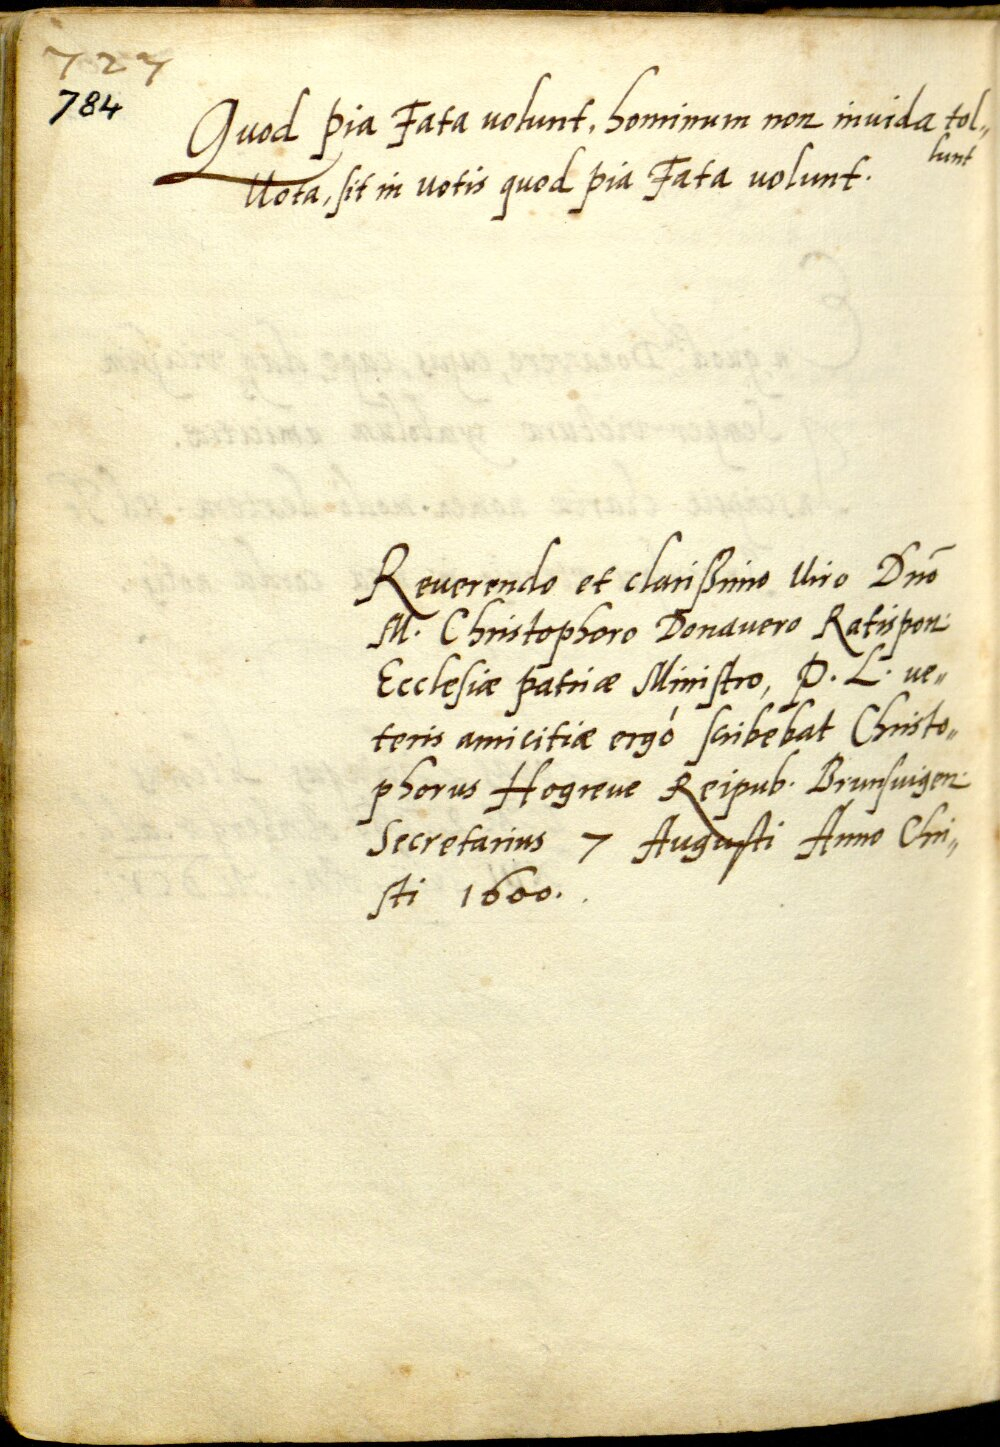 727
784
Quod pia Fata uolunt, hominum non inuida tol„
lunt
Uota, sit in uotis quod pia Fata uolunt.
Reuerendo et clarißimo Uiro Dnō
M. Christophoro Donauero Ratispon:
Ecclesiæ patriæ Ministro, P. L. ue„
teris amicitiæ ergó scribebat Christo„
phorus Hogreue Reipub. Brunsuigen:
Secretarius 7 Augusti Anno Chri„
sti 1600.